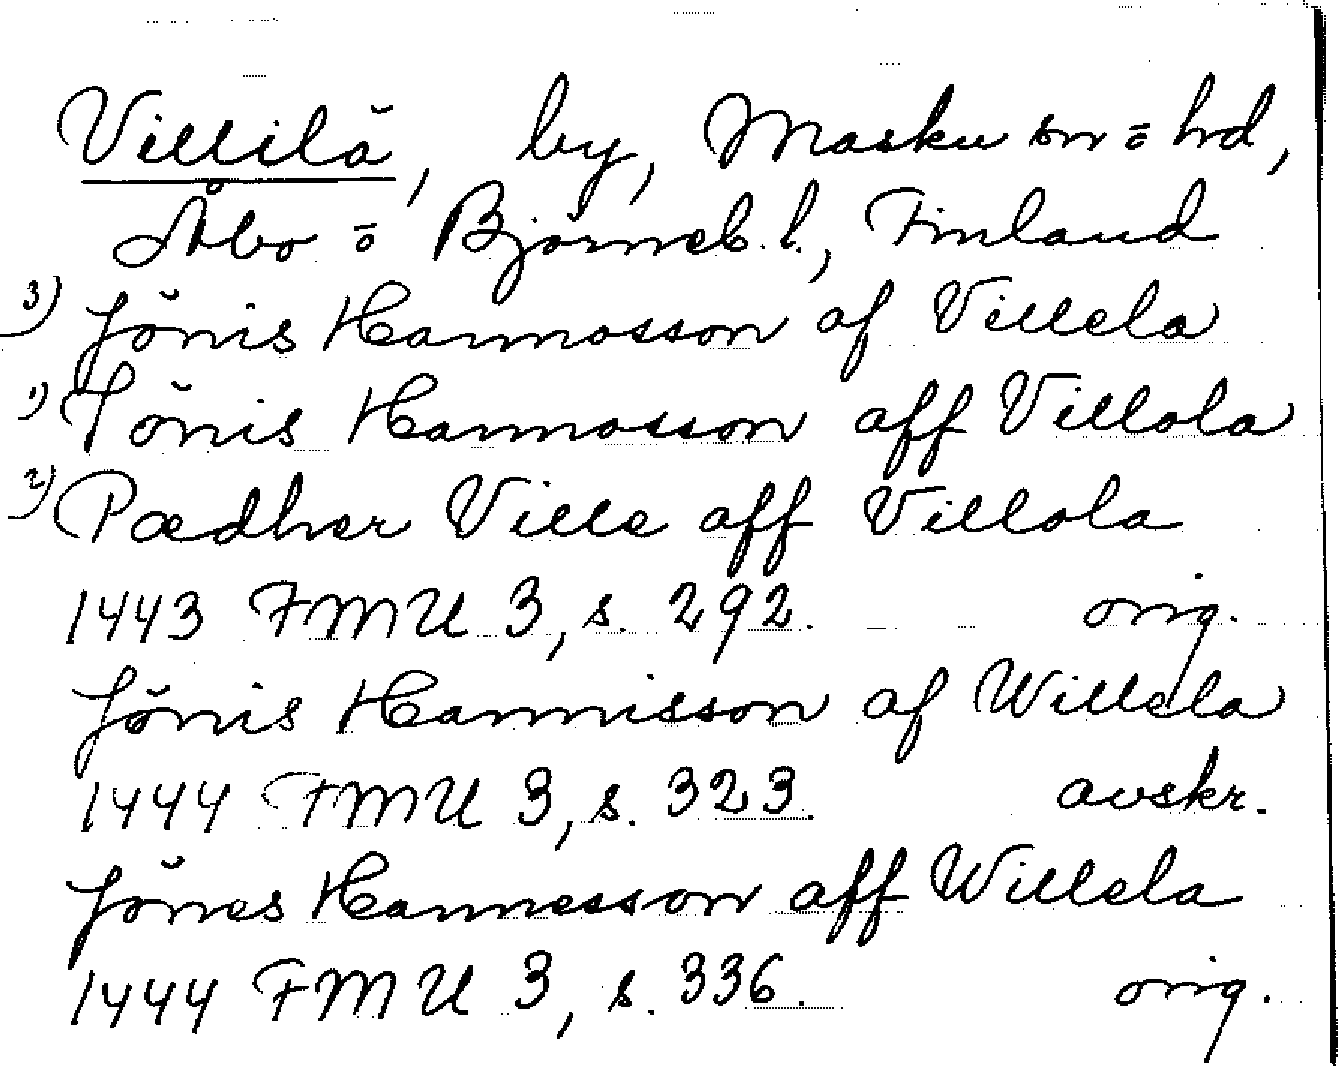 Villilä, by, Masku sn o hd,
Åbo o Björneb. l., Finland
3) Jönis Hannosson af Villela
1) Tönis Hannosson aff Villola
2) Pædher Ville aff Villola
1443 FMU 3, s. 292. orig.
Jönis Hannisson af Willela
1444 FMU 3, s. 323. avskr.
Jönes Hannesson aff Willela
1444 FMU 3, s. 336. orig.